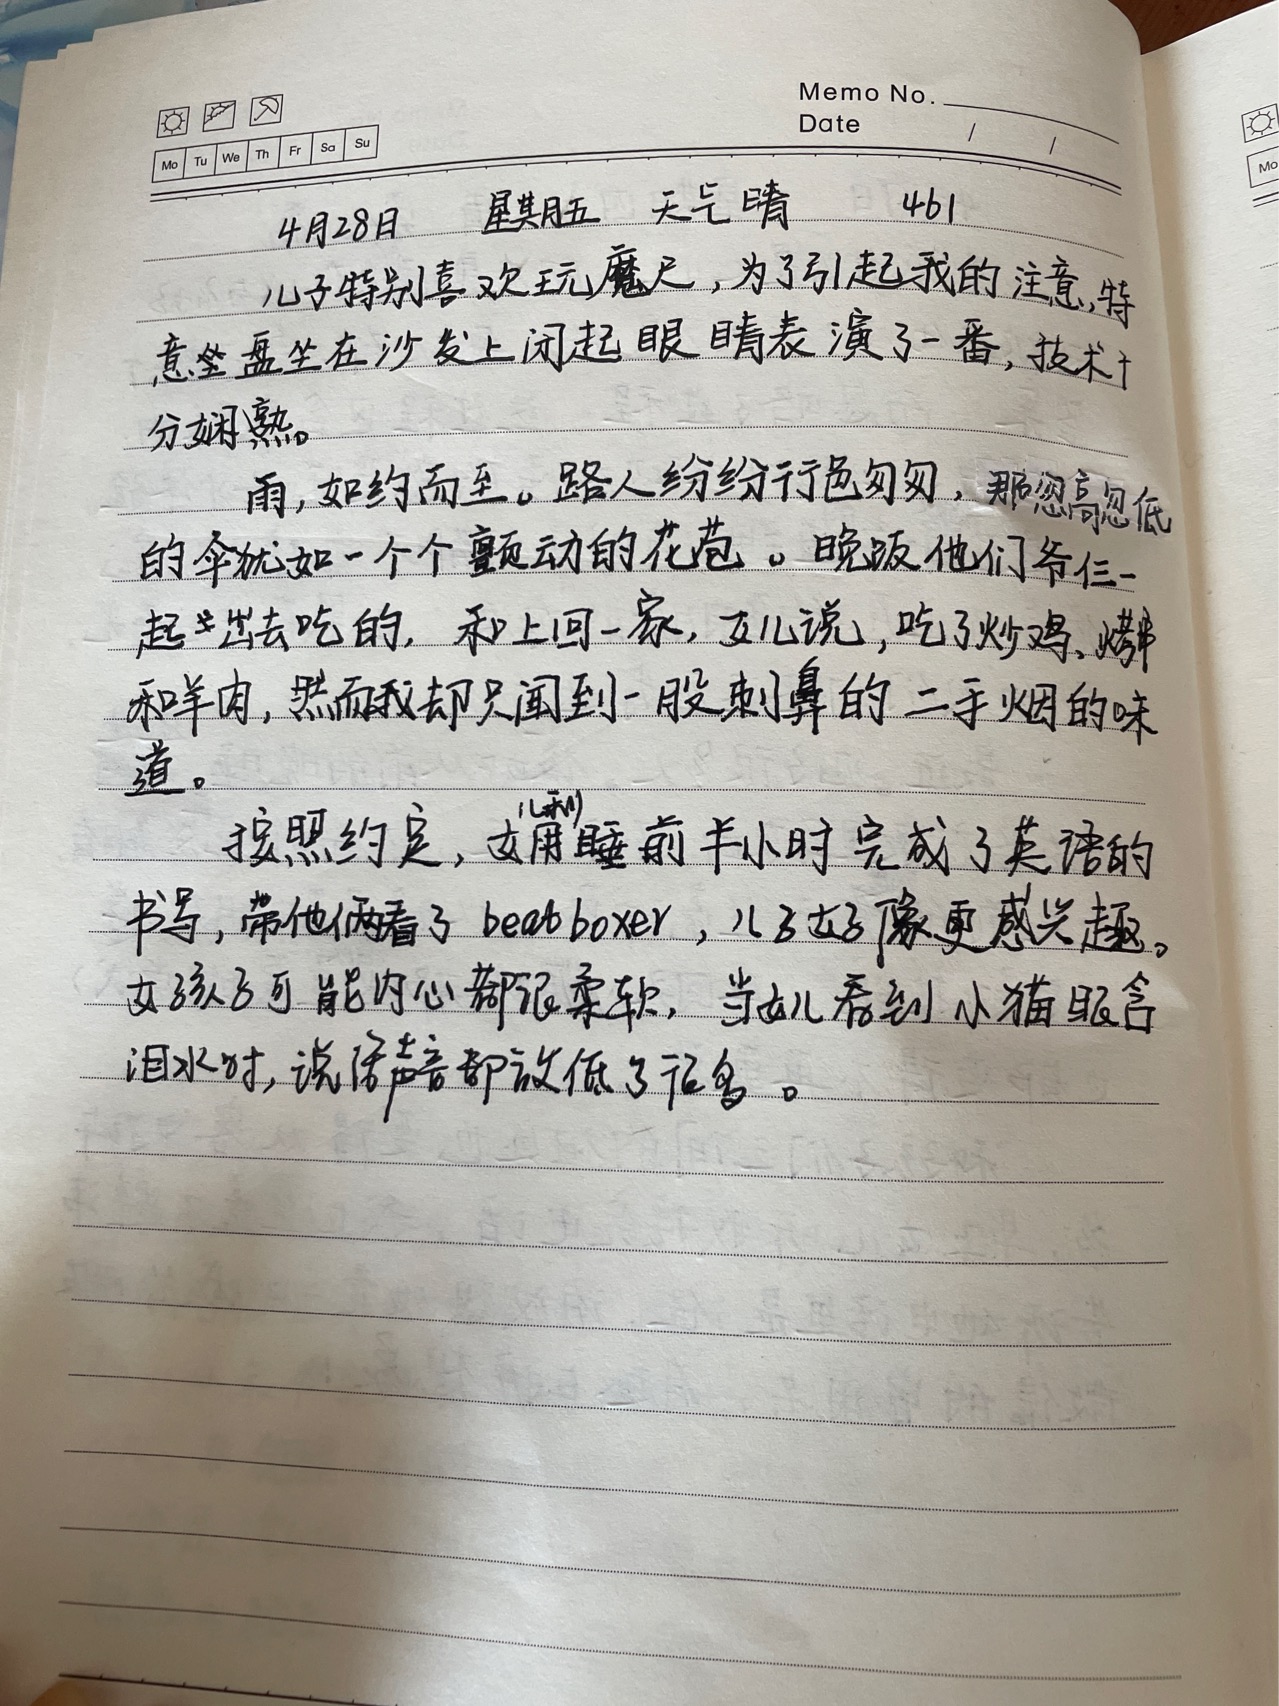 Memo No.
Date / /
Mo Tu We Th Fr Sa Su
Mo
4月28日 星期五 天气晴 461
儿子特别喜欢玩魔尺，为了引起我的注意，特
意坐盘坐在沙发上闭起眼睛表演了一番，技术十
分娴熟。
雨，如约而至。路人纷纷行色匆匆，那忽高忽低
的伞犹如一个个颤动的花苞。晚饭他们爷仨一
起出去吃的，和上回一家，女儿说，吃了炒鸡、烤串
和羊肉，然而我却只闻到一股刺鼻的二手烟的味
道。
按照约定，女儿利用睡前半小时完成了英语的
书写，带他俩看了beatboxer，儿子好像更感兴趣。
女孩子可能内心都很柔软，当女儿看到小猫眼含
泪水时，说话声音都放低了许多。